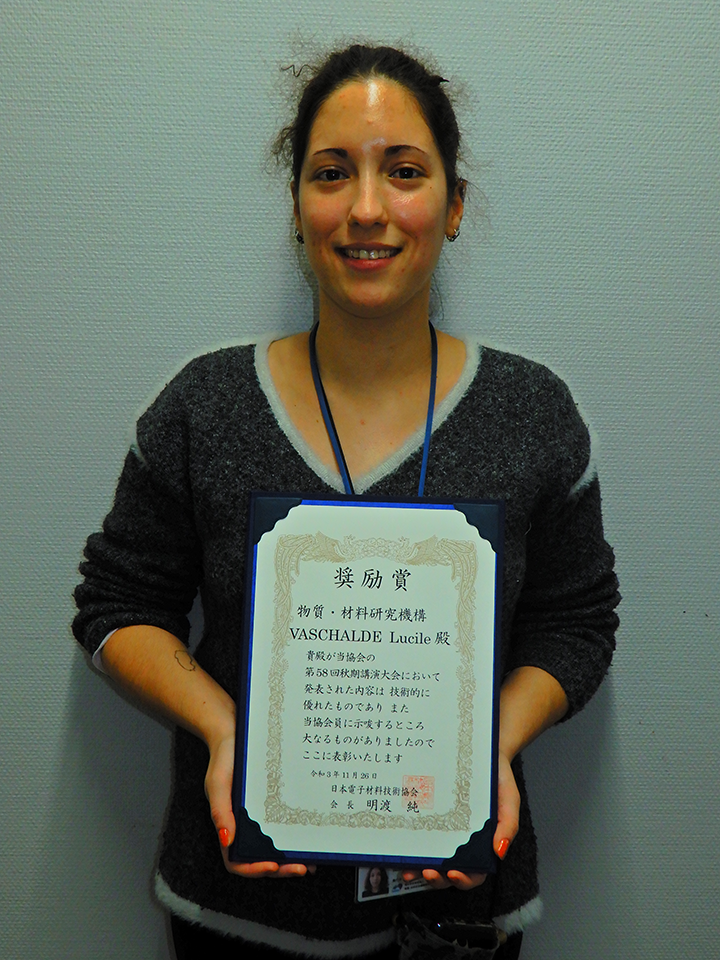 奨励賞
物質・材料研究機構
VASCHALDE Lucile 殿
貴殿が当協会の
第58回秋期講演大会において
発表された内容は 技術的に
優れたものであり また
当協会員に示唆するところ
大なるものがありましたので
ここに表彰いたします
令和3年11月26日
日本電子材料技術協会
会長 明渡 純